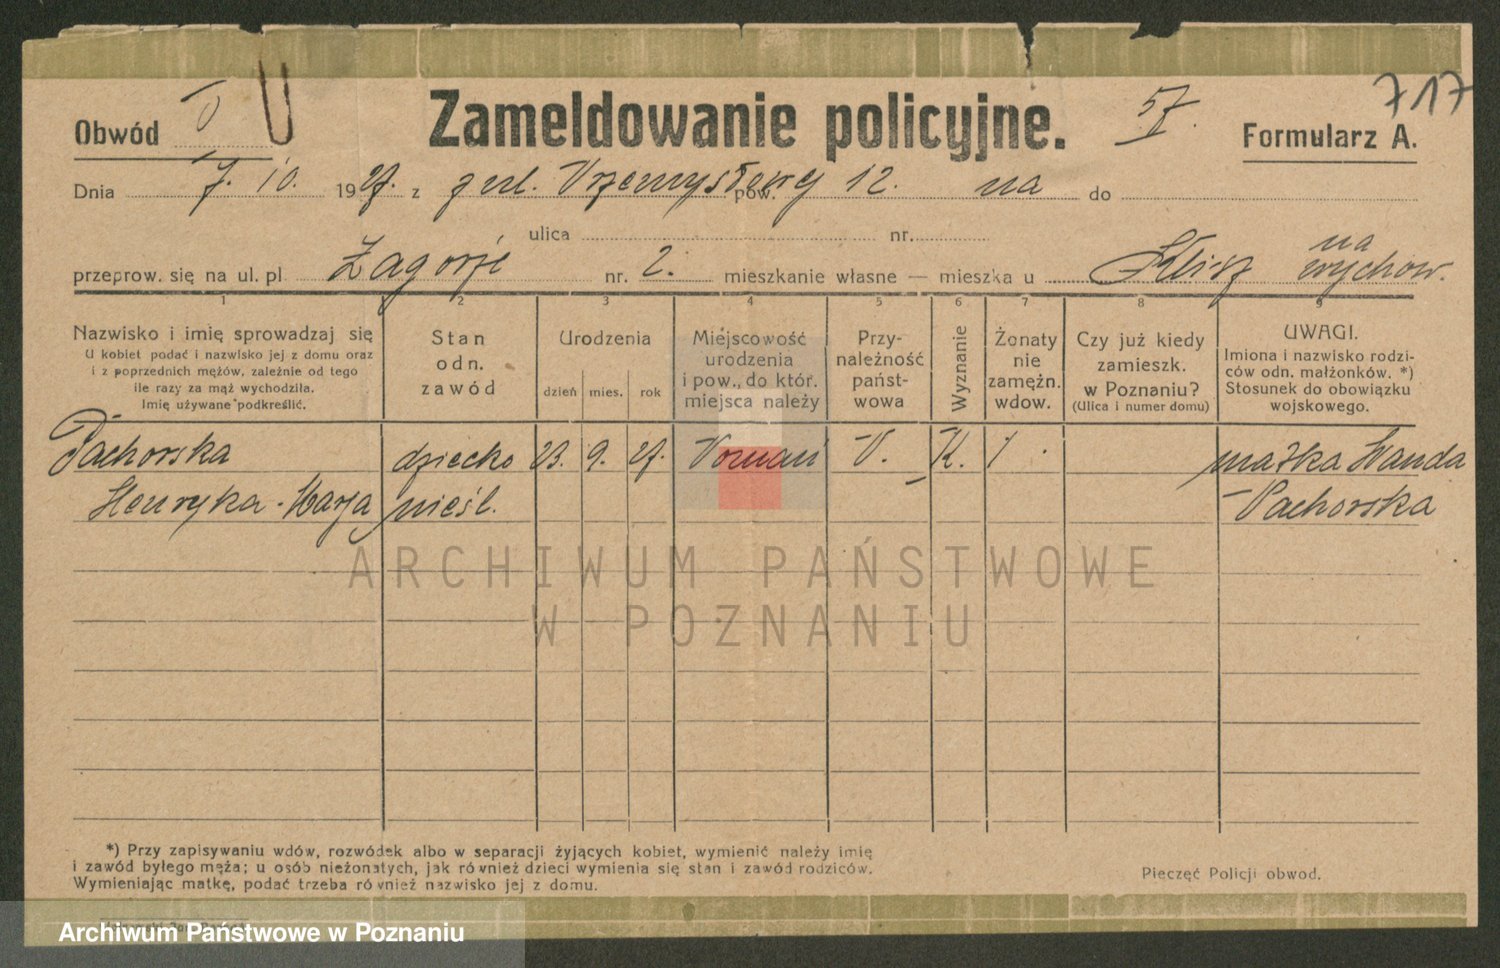 717
57
I
Obwód V
Zameldowanie policyjne.
Formularz A.
Dnia 7. 10. 1927. z z ul. Przemysłowej pow. 12. na do
ulica nr.
przeprow. się na ul. pl Zagorze nr. 2. mieszkanie własne — mieszka u Klisz na wychow.
1 2 3 4 5 6 7 8 9
Nazwisko i imię sprowadzaj się
U kobiet podać i nazwisko jej z domu oraz
i z poprzednich mężów, zależnie od tego
ile razy za mąż wychodziła.
Imię używane podkreślić.
Stan
odn.
zawód
Urodzenia
dzień mies. rok
Miejscowość
urodzenia
i pow., do któr.
miejsca należy
Przy-
należność
państ-
wowa
Wyznanie
Żonaty
nie
zamężn.
wdow.
Czy już kiedy
zamieszk.
w Poznaniu?
(Ulica i numer domu)
UWAGI.
Imiona i nazwisko rodzi-
ców odn. małżonków. *)
Stosunek do obowiązku
wojskowego.
Pachorska dziecko 23. 9. 27. Poznań P. K. / . matka Wanda
Henryka - Marja nieśl. Pachorska
ARCHIWUM PAŃSTWOWE
W POZNANIU
*) Przy zapisywaniu wdów, rozwódek albo w separacji żyjących kobiet, wymienić należy imię
i zawód byłego męża; u osób nieżonatych, jak również dzieci wymienia się stan i zawód rodziców.
Wymieniając matkę, podać trzeba również nazwisko jej z domu.
Pieczęć Policji obwod.
Archiwum Państwowe w Poznaniu